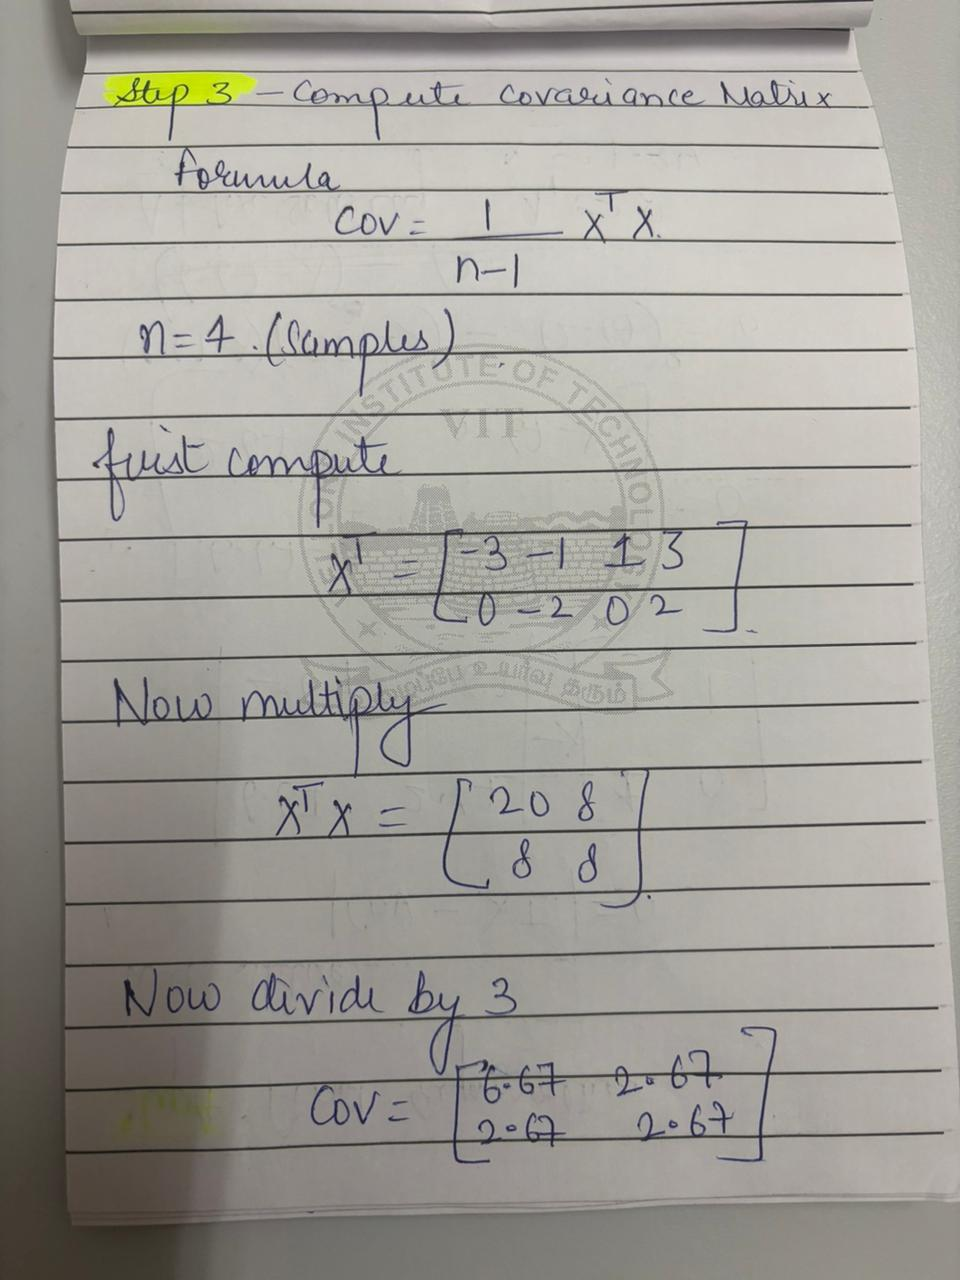 Step 3 - Compute Covariance Matrix
Formula
Cov = 1 / n-1 X^T X.
n = 4. (Samples).
first compute
X^T = [-3 -1 1 3
0 -2 0 2].
Now multiply
X^T X = [20 8
8 8].
Now divide by 3
Cov = [6.67 2.67
2.67 2.67]
INSTITUTE OF TECHNOLOGY
VIT